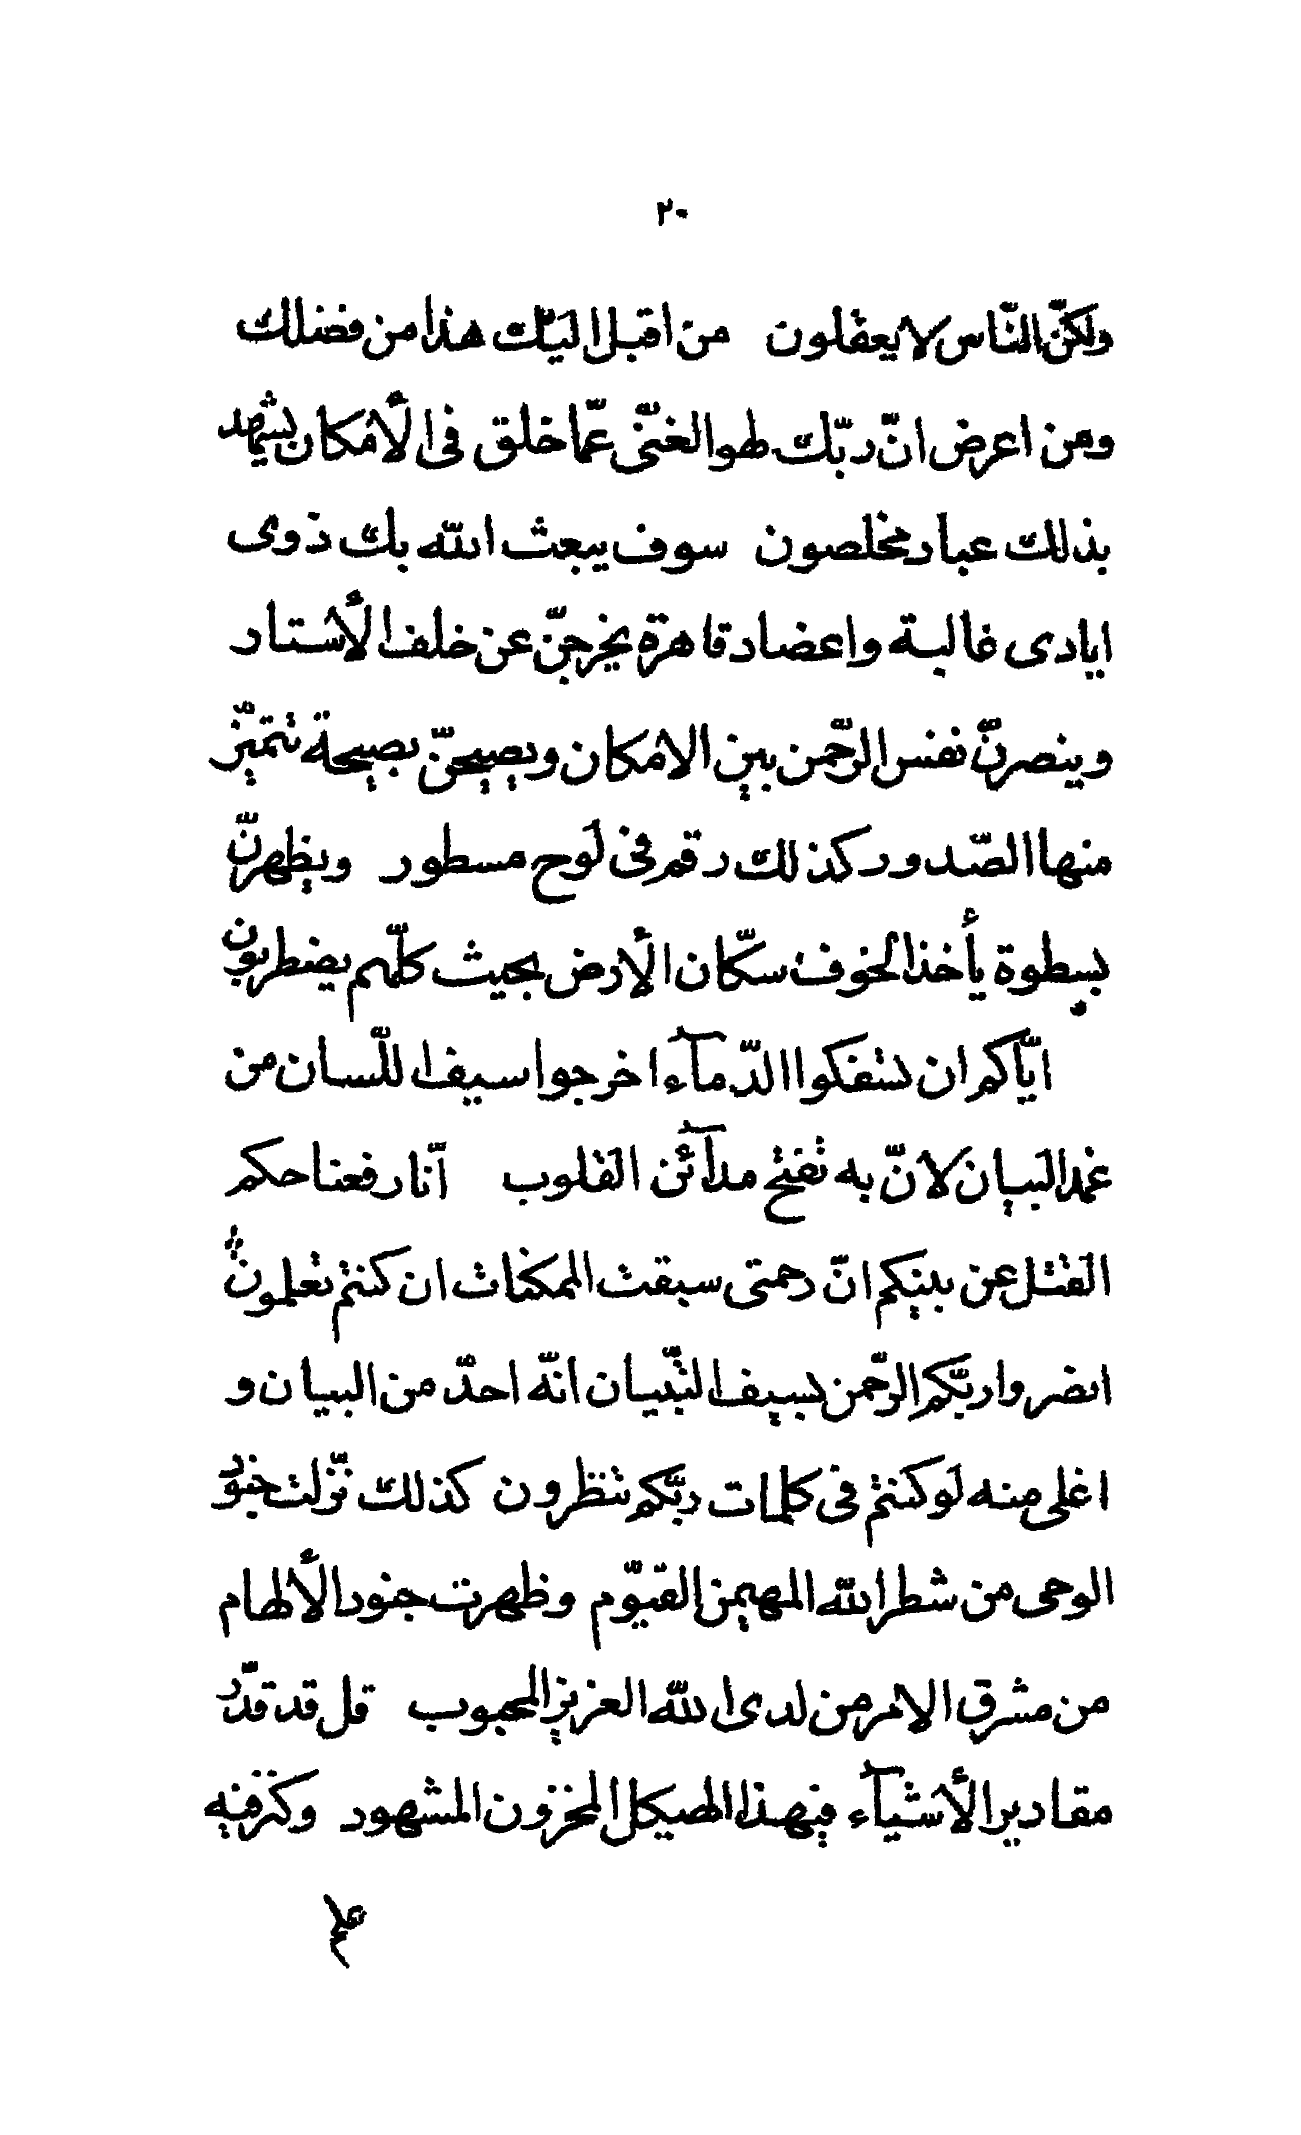 ٢٠
ولكنّ النّاس لا يعقلون من اقبل اليك هذا من فضلك
ومن اعرض انّ ربّك لهو الغنّى عمّا خلق فى الأمكان يشهد
بذلك عباد مخلصون سوف يبعث الله بك ذوى
ايادى غالبة واعضاد قاهرة يخرجنّ عن خلف الأستار
وينصرنّ نفس الرّحمن بين الامكان ويصيحنّ بصيحة تتميّز
منها الصّدور كذلك رقم فى لوح مسطور ويظهرنّ
بسطوة يأخذ الخوف سكّان الأرض بحيث كلّهم يضطربون
ايّاكم ان تسفكوا الدّمآء اخرجوا سيف اللّسان من
غمد البيان لانّ به تفتح مدآئن القلوب انّا رفعنا حكم
القتل عن بينكم انّ رحمتى سبقت الممكنات ان كنتم تعلمون
انصروا ربّكم الرّحمن بسيف التّبيان انّه احدّ من البيان و
اعلى منه لو كنتم فى كلمات ربّكم تنظرون كذلك نزّلت جنود
الوحى من شطر الله المهيمن القيّوم وظهرت جنود الألهام
من مشرق الامر من لدى الله العزيز المحبوب قل قد قدّر
مقادير الأشيآء فى هذا الهيكل المخزون المشهود وكنز فيه
علم